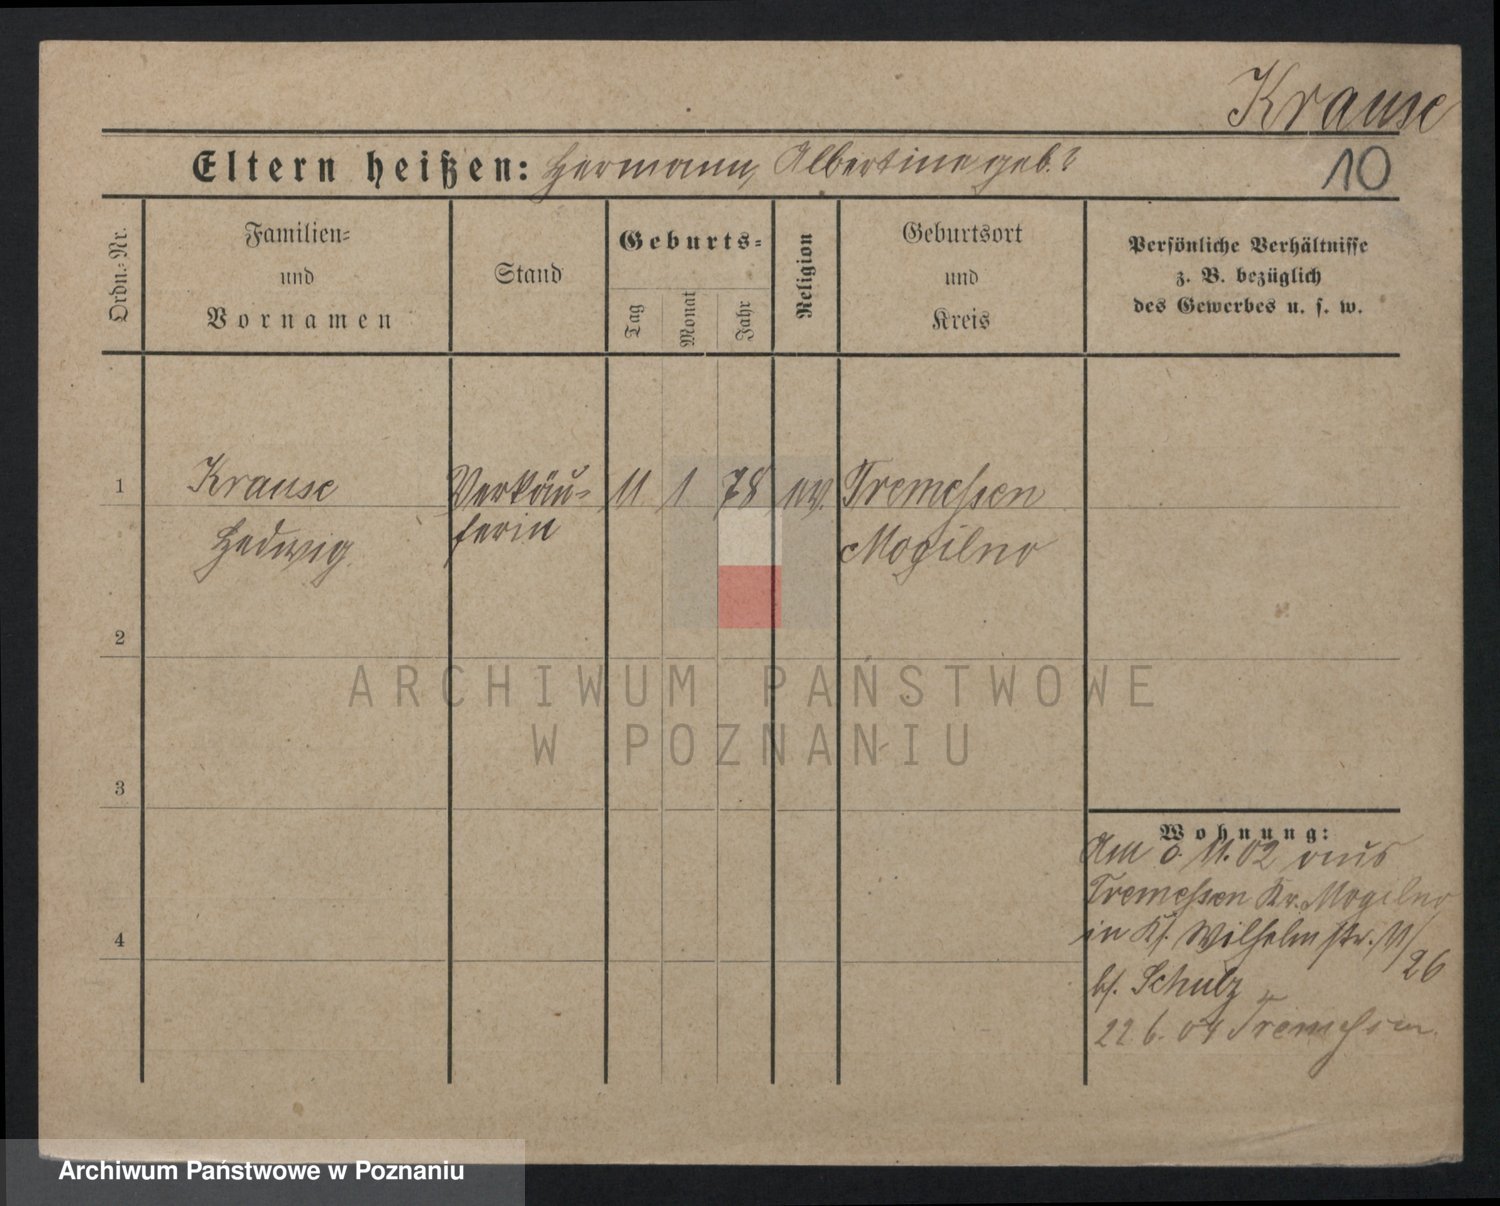 Krause
Eltern heißen: Hermann, Albertine geb. ?
10
Ordn.-Nr.
Familien-
und
Vornamen
Stand
Geburts-
Tag
Monat
Jahr
Religion
Geburtsort
und
Kreis
Persönliche Verhältnisse
z. B. bezüglich
des Gewerbes u. s. w.
1 Krause Verkäu- 11 1 78 ev. Tremessen
Hedwig ferin Mogilno
2
ARCHIWUM PAŃSTWOWE
W POZNANIU
3
Wohnung:
Am 11.02 aus
Tremessen Kr. Mogilno
in Wilhelmstr.
26
4
bei Schulz
22.6.04 Tremessen.
Archiwum Państwowe w Poznaniu